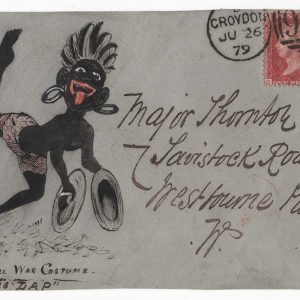 CROYDON
JU 26
79
Major Thornton
7 Tavistock Roa
Westbourne Pa
W
WAR COSTUME.